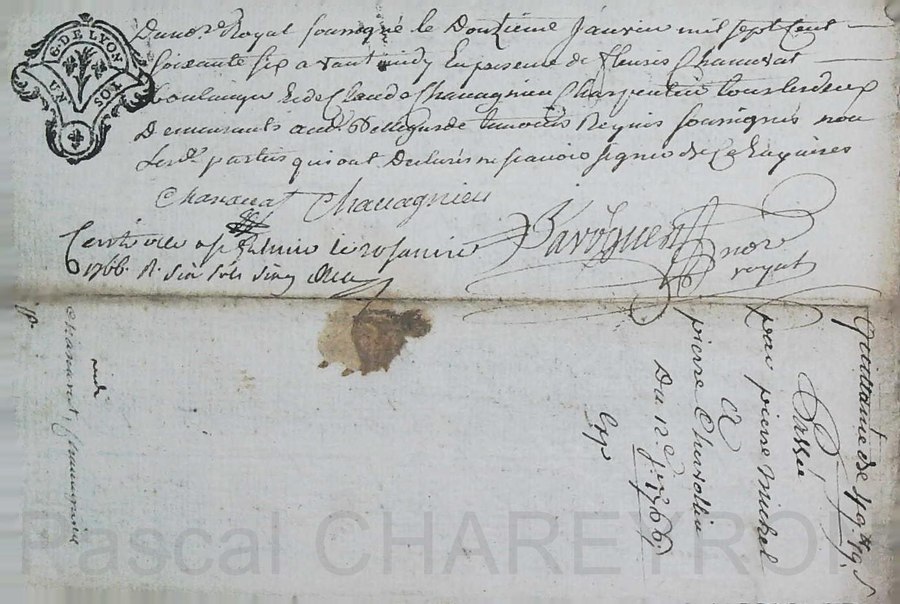 G. DE LYON
UN SOL
Du no.re Royal soussigné le Douzieme Janvier mil sept Cent
soixante six avant midy En présence de fleuris Chanavat
boulanger et de Claude Chavagnieu Charpentier tous les deux
Demeurants au de Bellegarde temoins Requis soussignés non
Les.d. parties qui ont Declarés ne scavoir signer de Ce Enquises
Chanavat Chavagnieu
Controllé a le 20 janvier
1766. R. six sols
no.re
royal
quittance de 49.tt 19.s
Passée
par pierre michel
A
pierre Chavallin
Du 12.e j.er 1766
Exp
Pascal CHAREYRON